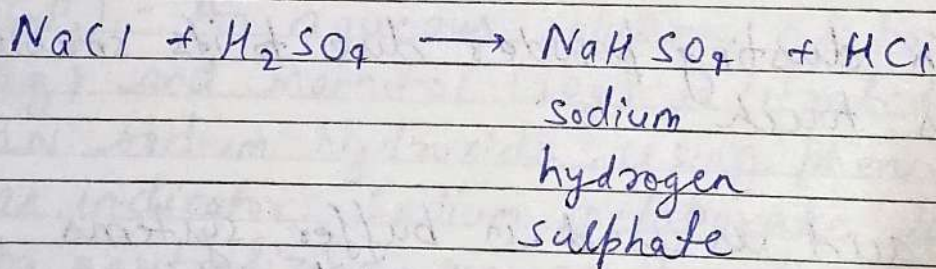 NaCl + H₂SO₄ ⟶ NaHSO₄ + HCl
sodium
hydrogen
sulphate